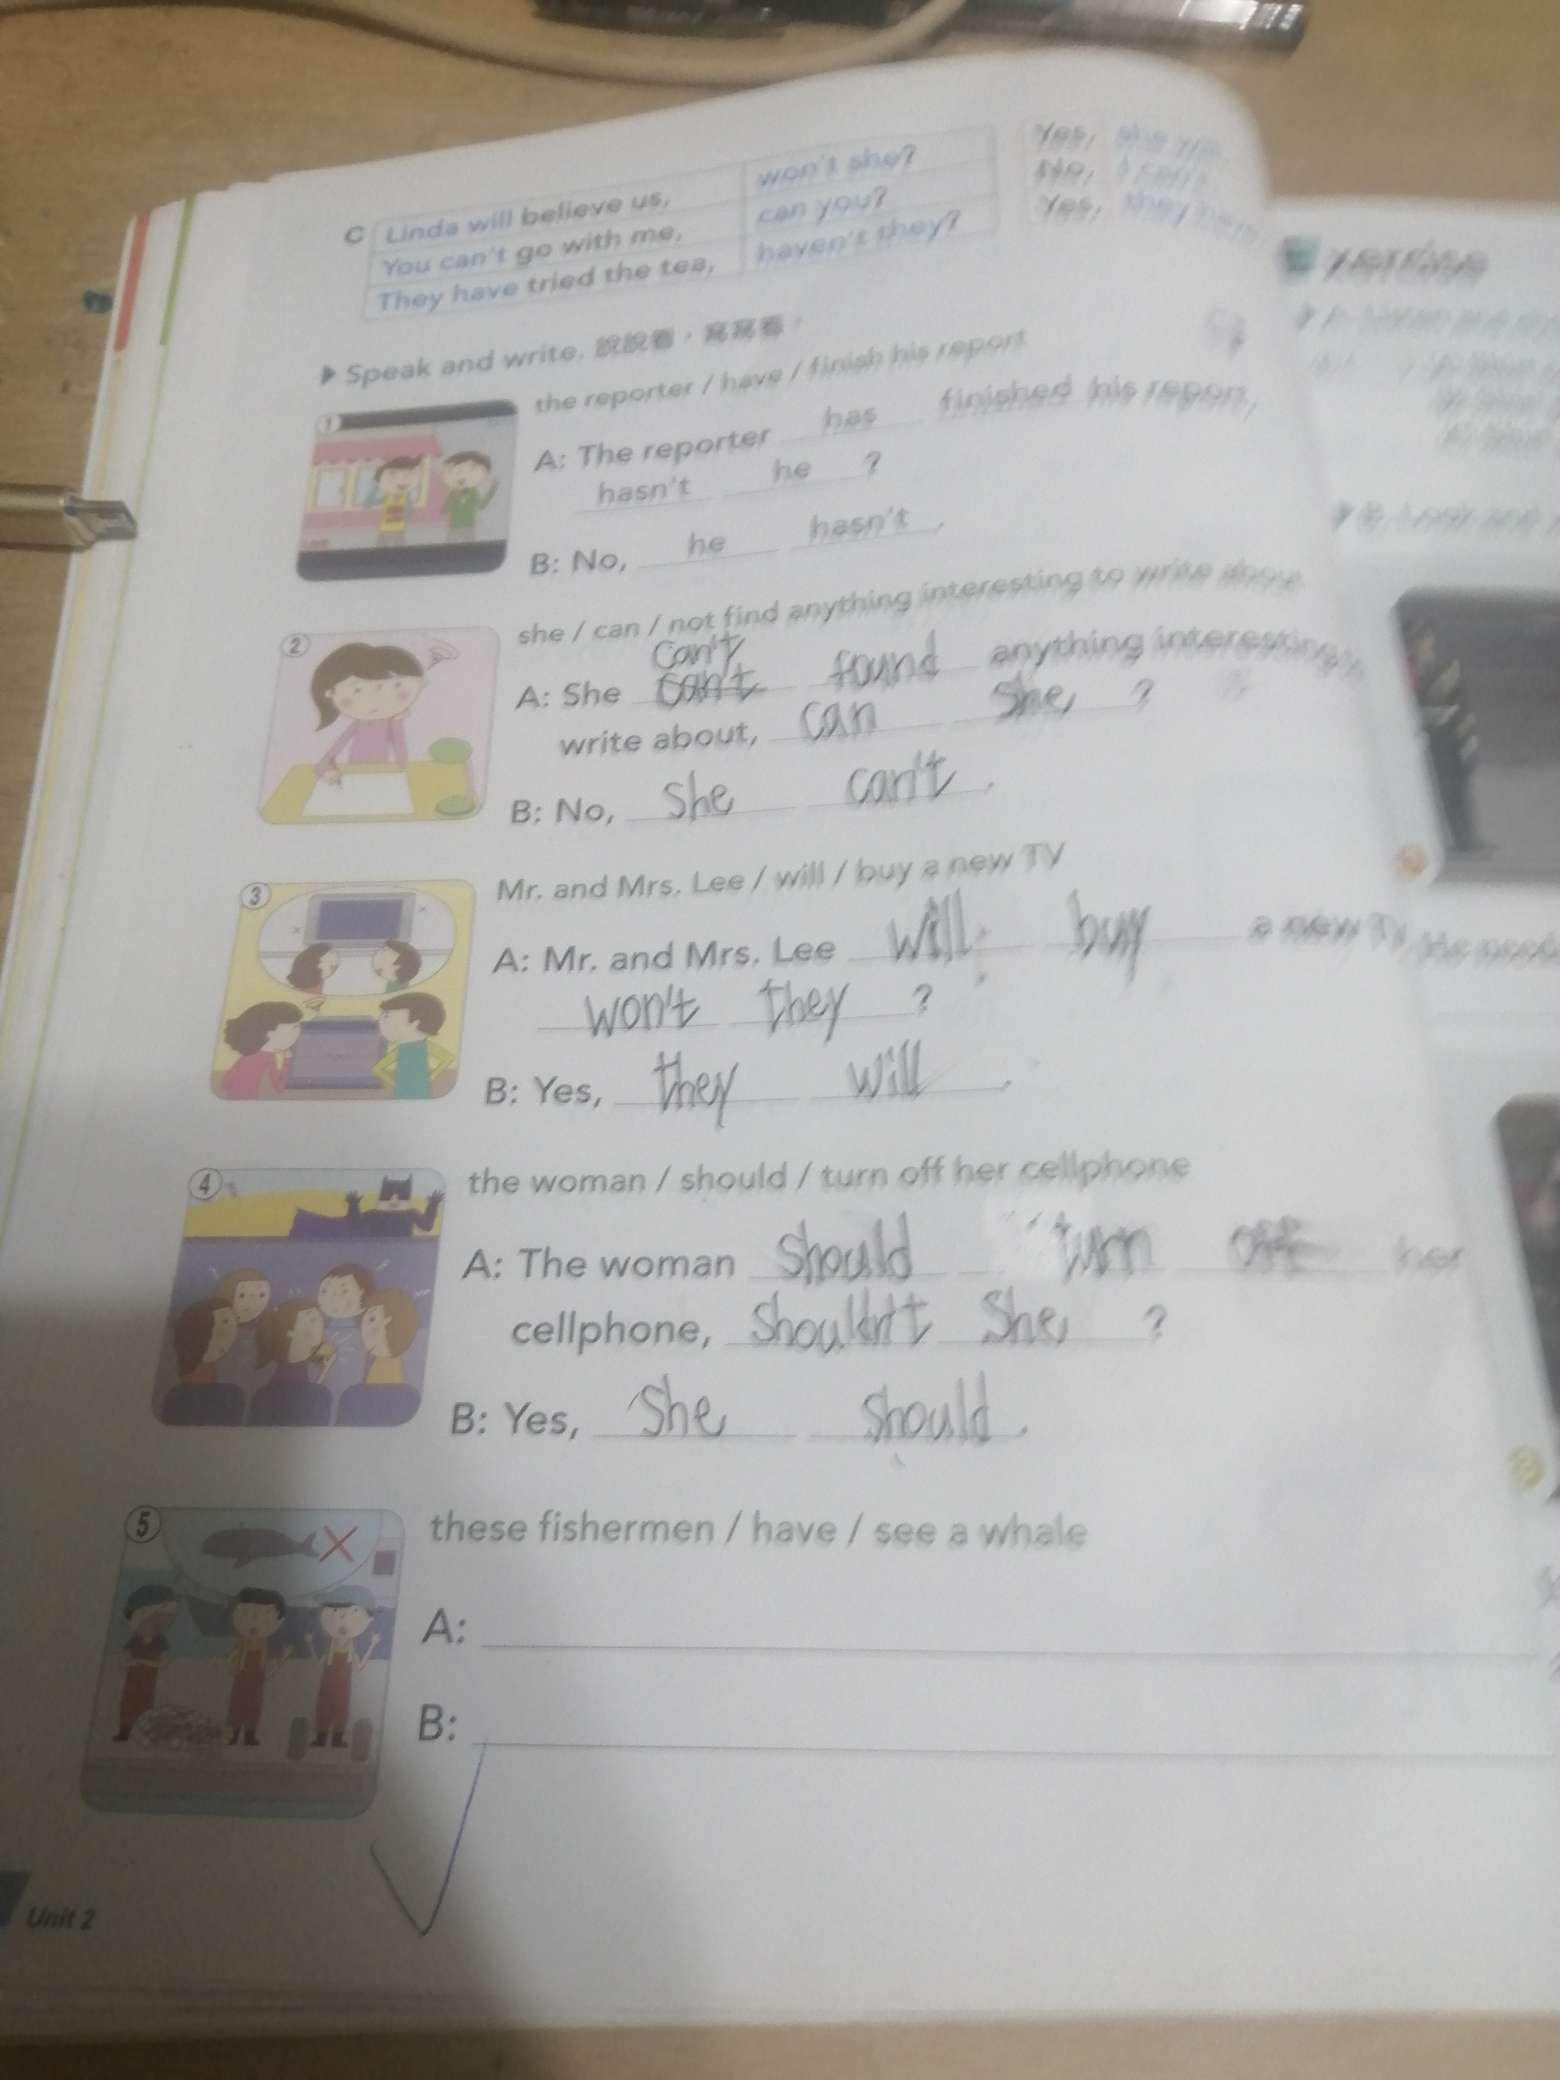 C Linda will believe us, won't she? Yes, she
You can't go with me, can you? No, I can't.
They have tried the tea, haven't they? Yes, they have.
Speak and write. 說說看，寫寫看。
1 the reporter / have / finish his report
A: The reporter has finished his report,
hasn't he ?
B: No, he hasn't .
2 she / can / not find anything interesting to write about
can't
A: She can't found anything interesting
write about, can she ?
B: No, she can't .
3 Mr. and Mrs. Lee / will / buy a new TV
A: Mr. and Mrs. Lee will buy a new TV
won't they ?
B: Yes, they will .
4 the woman / should / turn off her cellphone
A: The woman should turn off her
cellphone, shouldn't she ?
B: Yes, she should .
5 these fishermen / have / see a whale
A:
B:
Unit 2
xercise